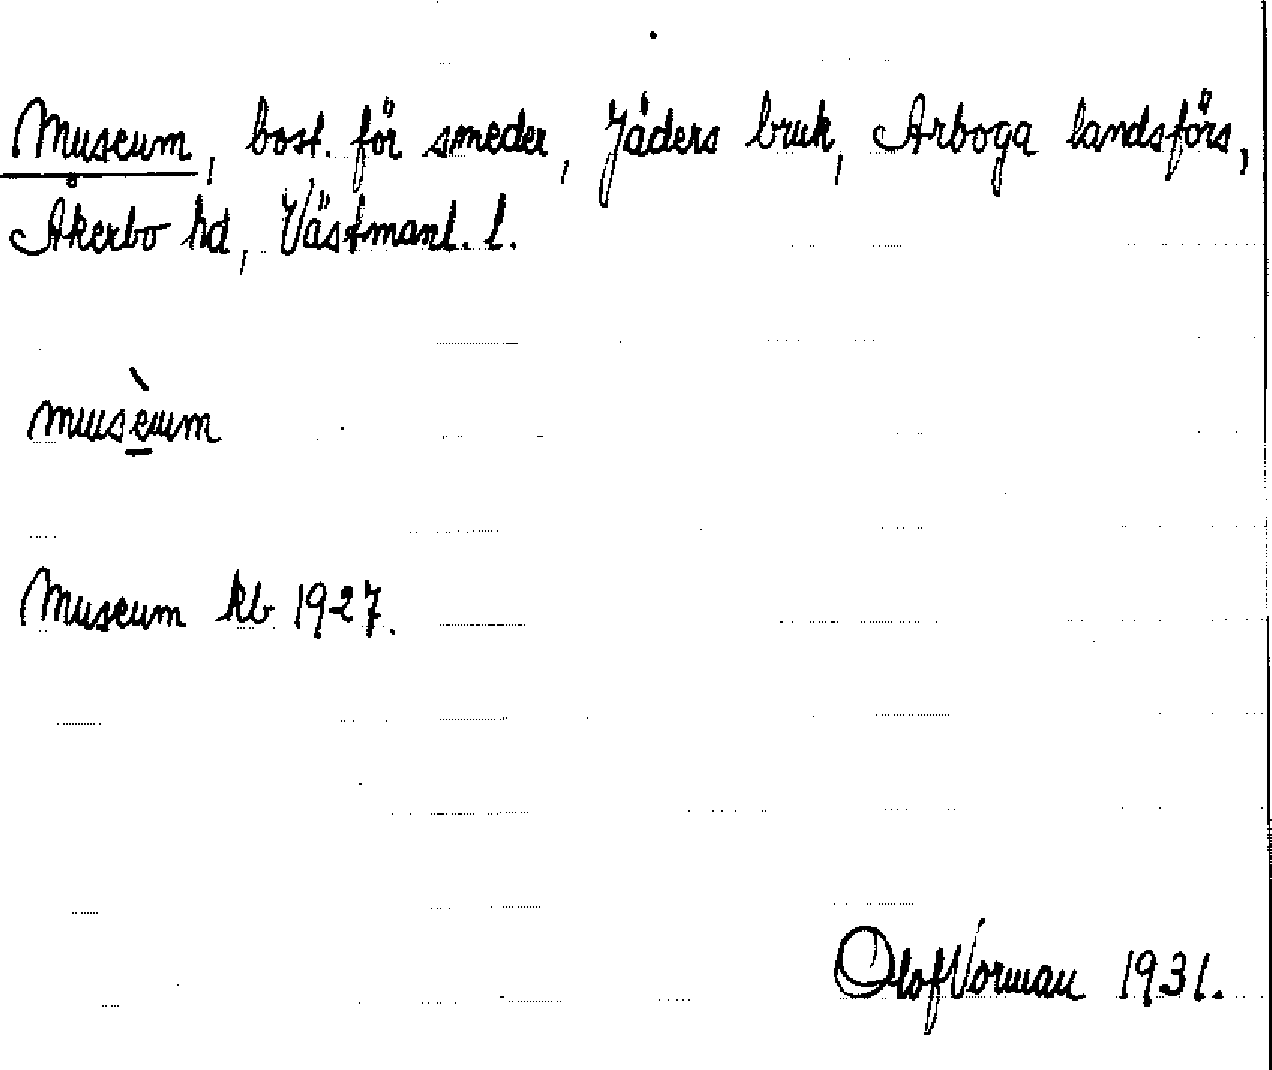 Museum, bost. för smeder, Jäders bruk, Arboga landsförs,
Åkerbo hd, Västmanl. l.
musèum
Museum kb 1927.
Olof Vorman 1931.